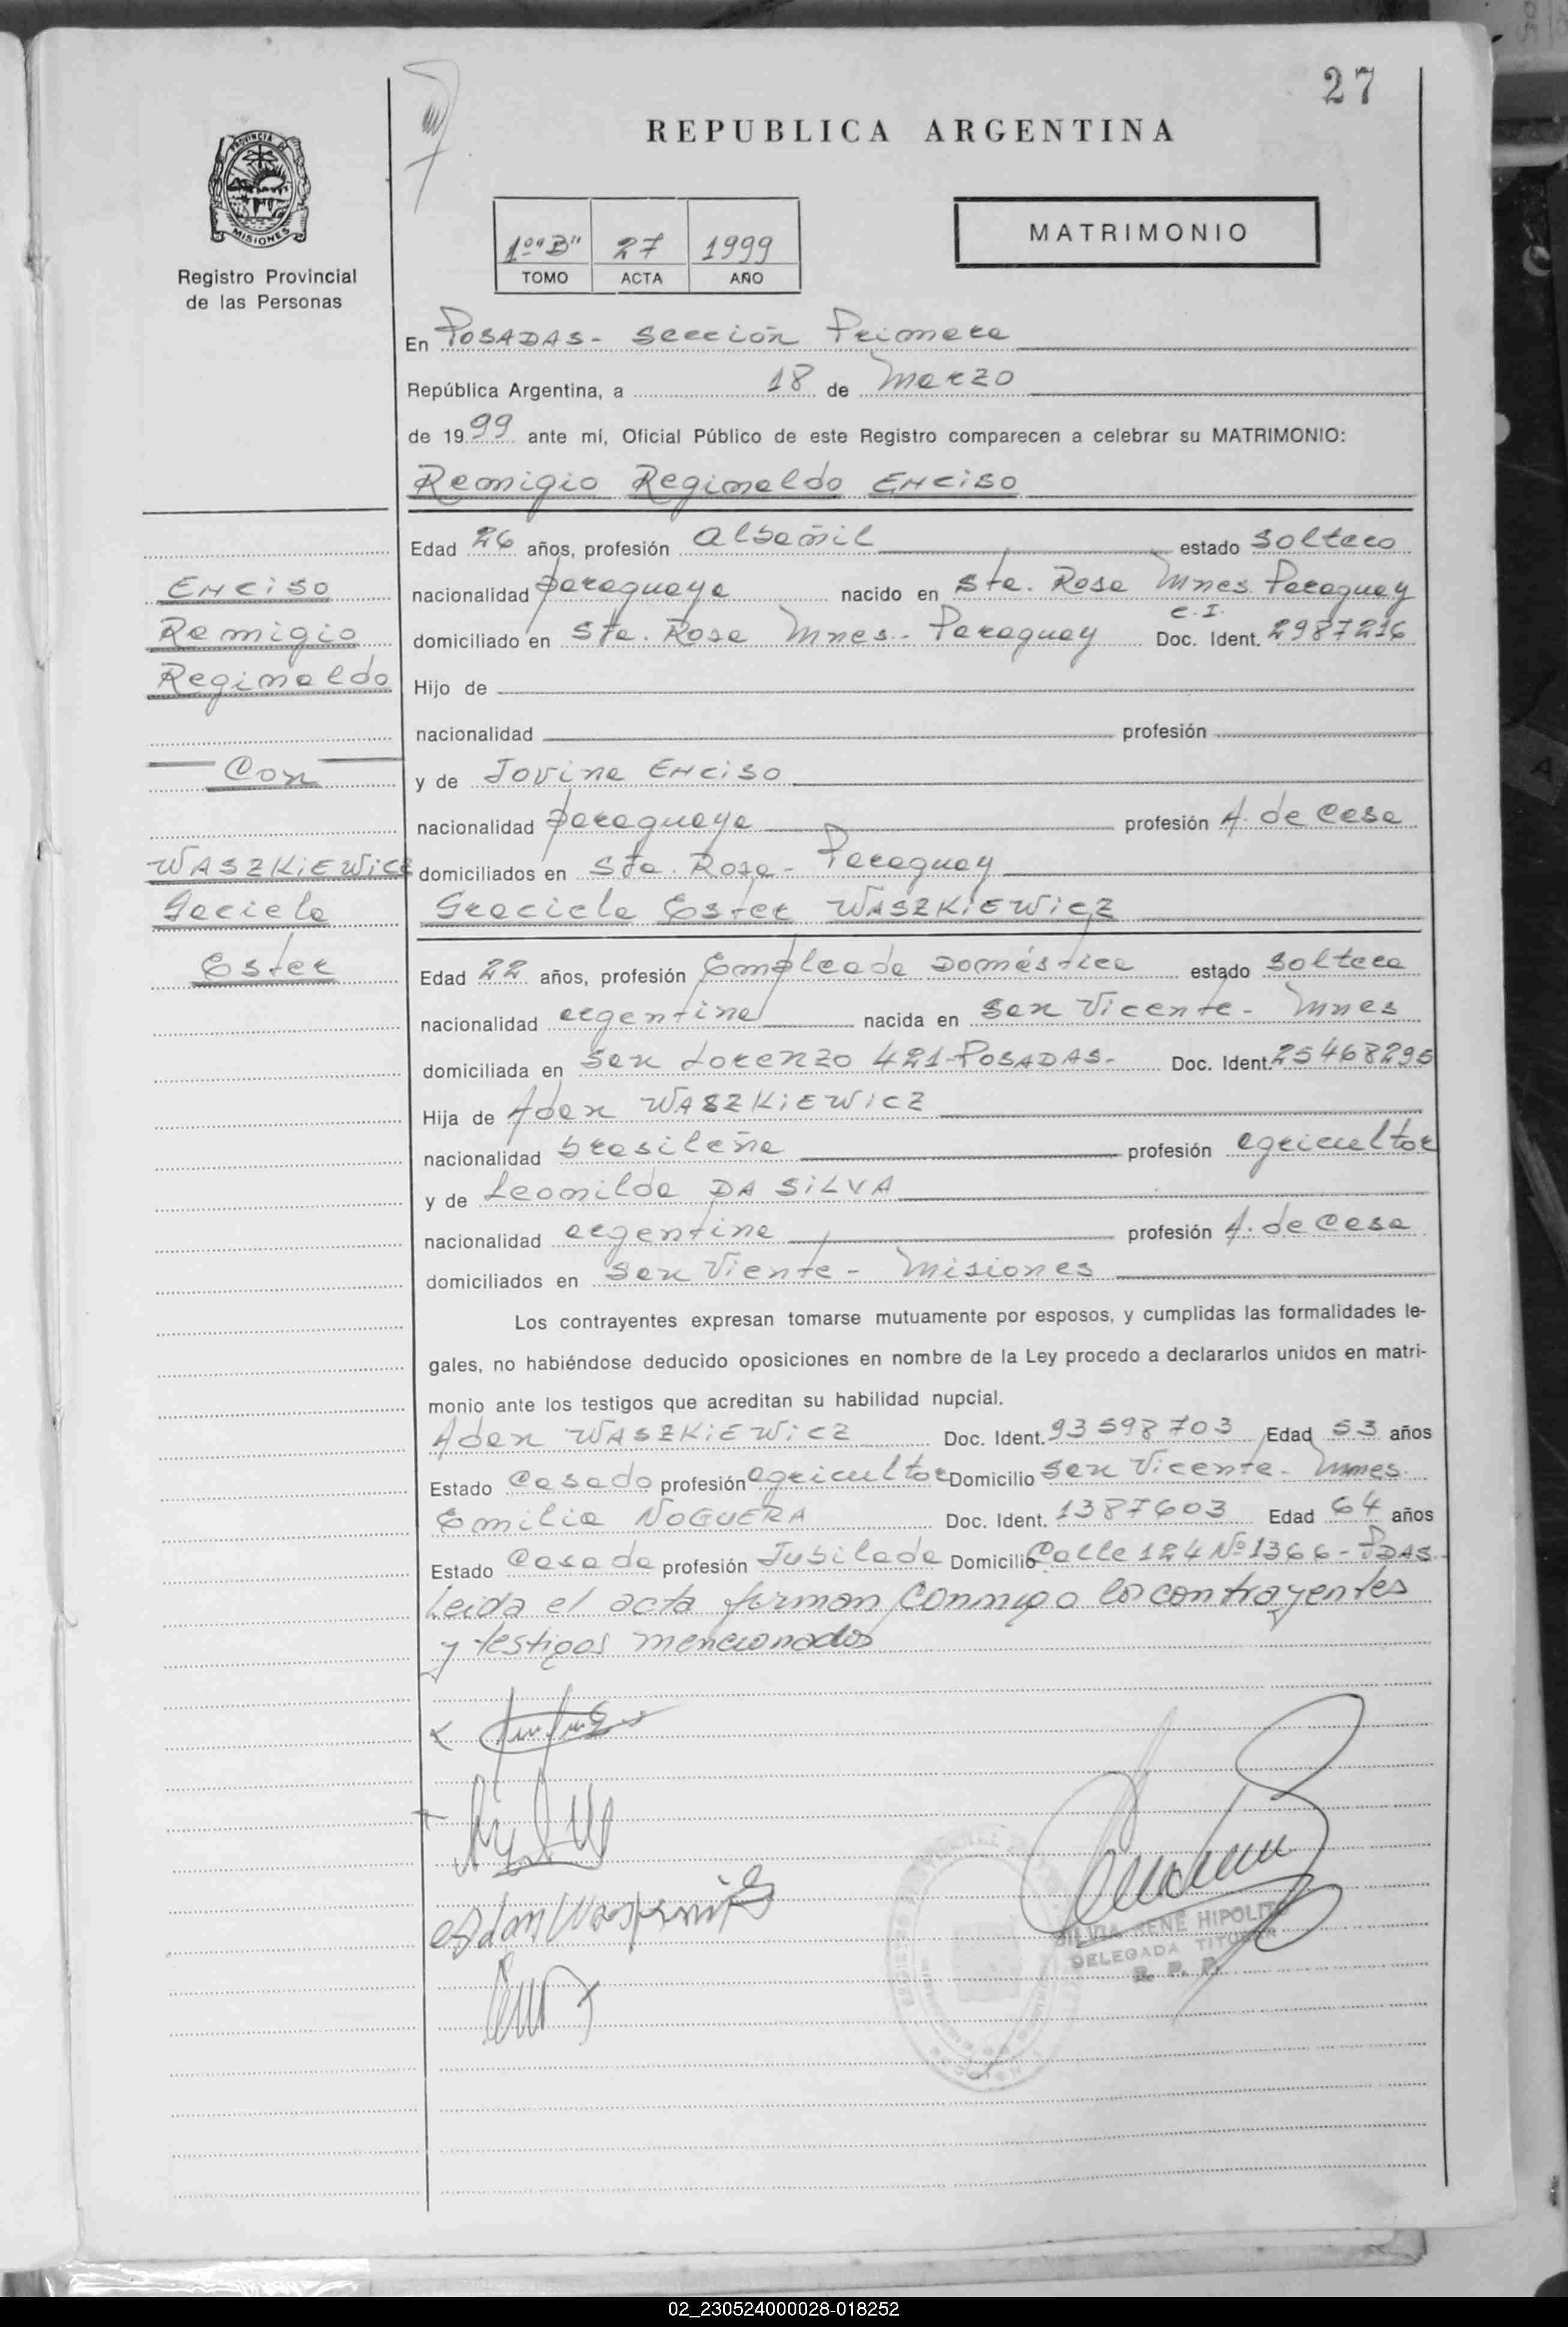 27
REPUBLICA ARGENTINA
PROVINCIA DE
MISIONES
Registro Provincial
de las Personas
1º "B" 27 1999
TOMO ACTA AÑO
MATRIMONIO
En POSADAS - Sección Primera
República Argentina, a 18 de Marzo
de 1999 ante mí, Oficial Público de este Registro comparecen a celebrar su MATRIMONIO:
Remigio Reginaldo ENCISO
Edad 26 años, profesión albañil estado soltero
nacionalidad paraguaya nacido en Sta. Rosa Mnes. Paraguay
domiciliado en Sta. Rosa Mnes - Paraguay Doc. Ident. C.I. 2987216
Hijo de
nacionalidad profesión
y de Jovina ENCISO
nacionalidad paraguaya profesión A. de Casa
domiciliados en Sta. Rosa - Paraguay
Graciela Ester WASZKIEWICZ
Edad 22 años, profesión Empleada Doméstica estado soltera
nacionalidad argentina nacida en San Vicente - Mnes
domiciliada en San Lorenzo 421 - POSADAS - Doc. Ident. 25468295
Hija de Adan WASZKIEWICZ
nacionalidad brasileña profesión agricultor
y de Leonilda DA SILVA
nacionalidad argentina profesión A. de Casa
domiciliados en San Viente - Misiones
Los contrayentes expresan tomarse mutuamente por esposos, y cumplidas las formalidades le-
gales, no habiéndose deducido oposiciones en nombre de la Ley procedo a declararlos unidos en matri-
monio ante los testigos que acreditan su habilidad nupcial.
Adan WASZKIEWICZ Doc. Ident. 93598703 Edad 53 años
Estado Casado profesión agricultor Domicilio San Vicente - Mnes.
Emilia NOGUERA Doc. Ident. 1387603 Edad 64 años
Estado Casada profesión Jubilada Domicilio Calle 124 Nº 1366 - PDAS.
Leida el acta firman conmigo los contrayentes
y testigos mencionados
ENCISO
Remigio
Reginaldo
Con
WASZKIEWICZ
Gaciela
Ester
SILVIA RENE HIPOLITO
DELEGADA TITULAR
R. P. P.
02_230524000028-018252